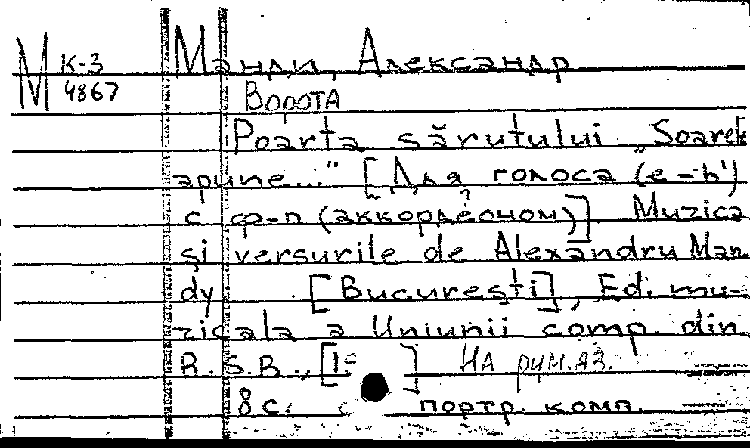 М К-3 Манди, Александр
4867 Ворота
Poarta sărutului „Soarele
apune..." [Для голоса (e – h¹)
с ф-п (аккордеоном)] Muzica
și versurile de Alexandru Man
dy [București], Ed. mu-
zicala a Uniunii comp. din
R.S.R., [ ] На рум.яз.
8 с. портр. комп.